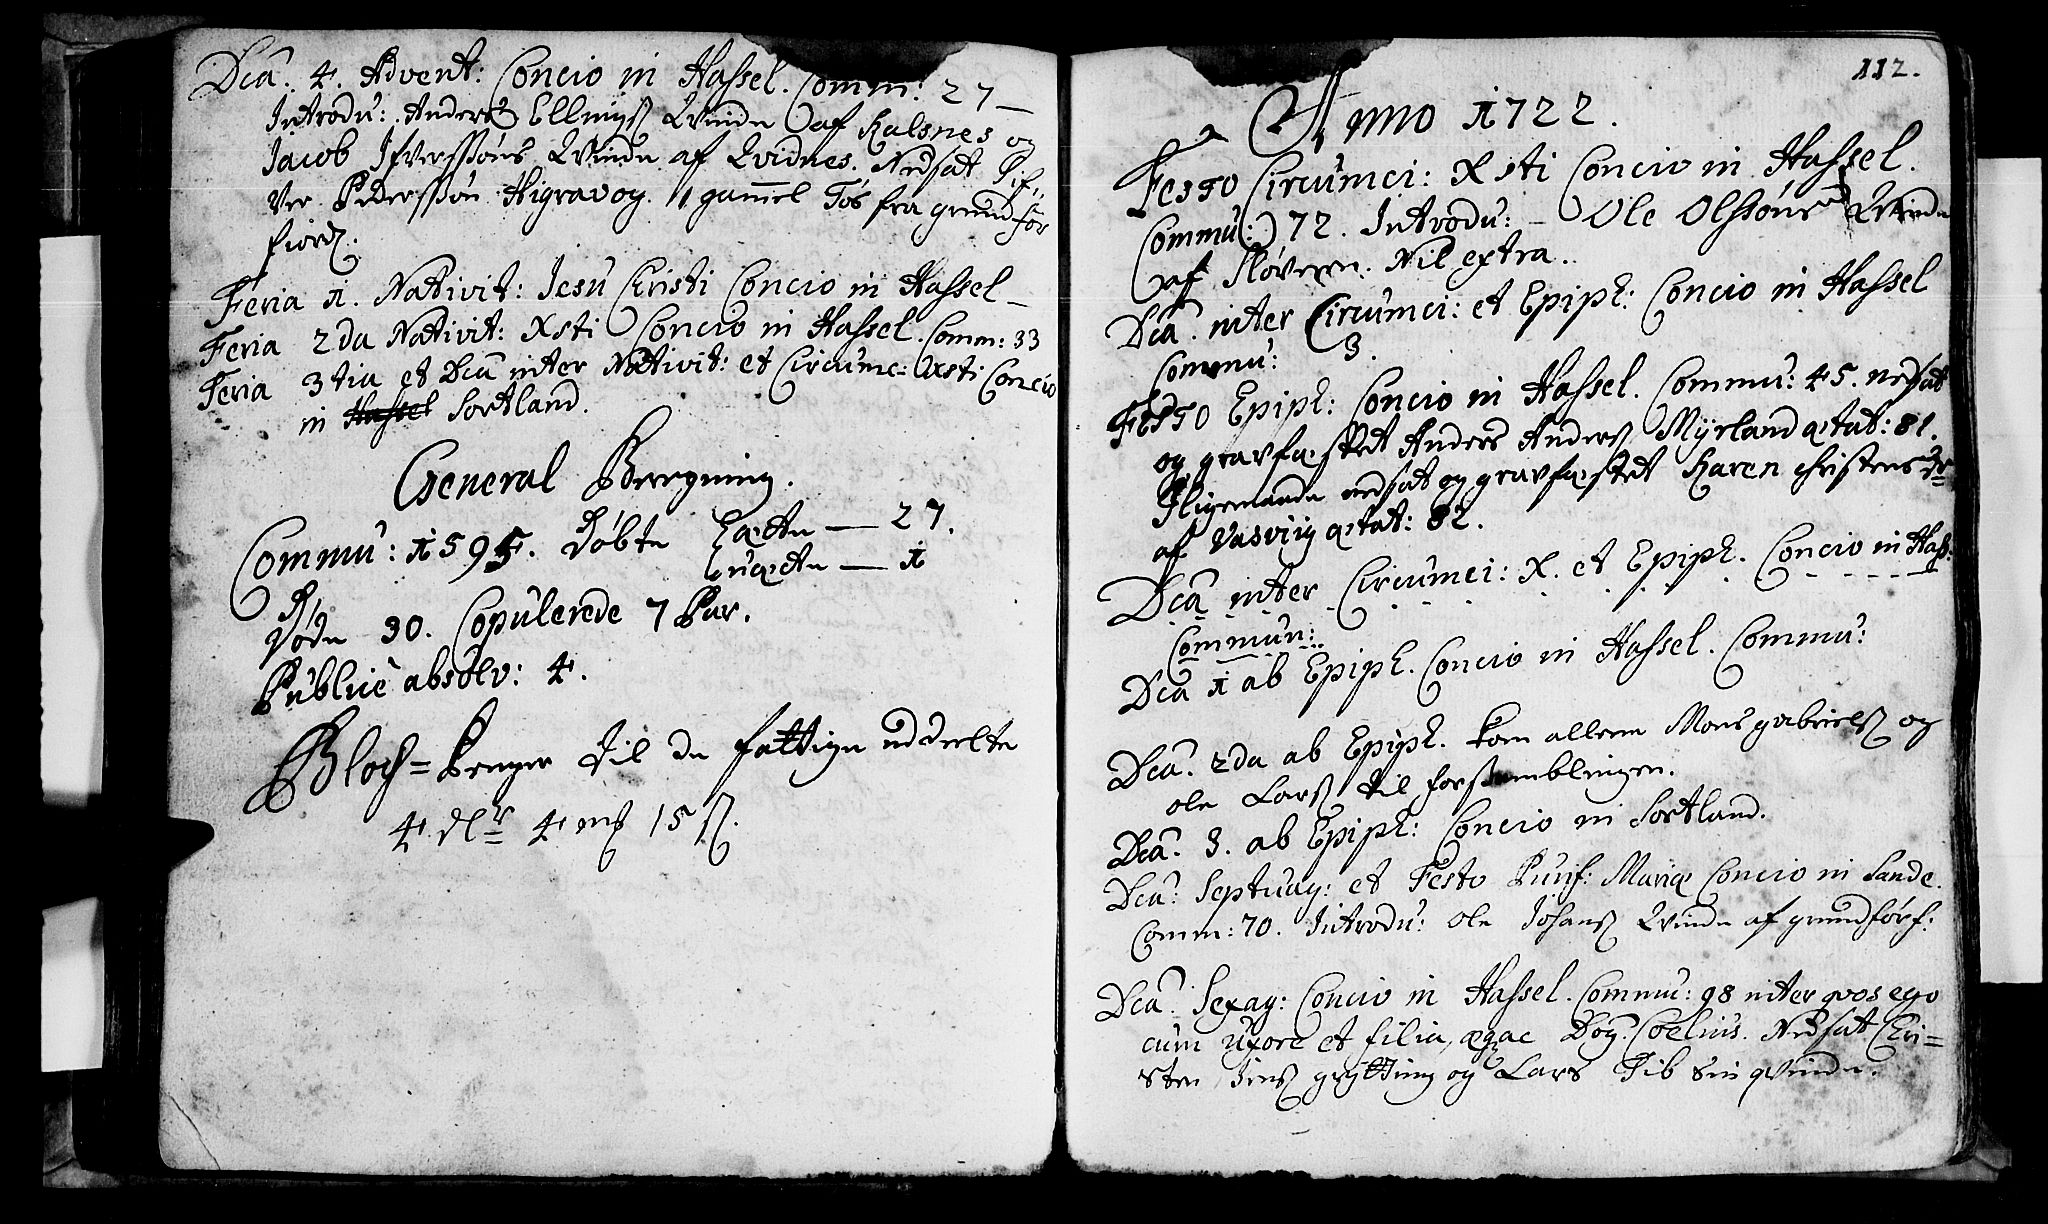 Dca. 4. Advent: Concio in Hassel. Comm: 27 —
Introdu: Anders Ellingsß Qvinde af Kalsnes og
Jacob Ifverssøns Qvinde af Qvidnes. Nedsat Sif-
ver Pederssøn Higravog. 1 gammel Tøs fra grundfør
fiord.
Feria 1. Nativit: Jesu Christi Concio in Hassel —
Feria 2da Nativit: Xsti Concio in Hassel. Comm: 33
Feria 3tia et Dca inter Nativit: et Circumc: Xsti Concio
in Hassel Sortland.
General Beregning.
Commu: 1595. Døbte Ægte — 27.
Uægte — 1
Døde 30. Copulerede 7 Par.
Publicè absolv: 4.
Bloch=Penger til de fattige uddeelte
4 dlr 4 mß 15 ß.
112.
Anno 1722.
Festo Circumci: Xsti Concio in Hassel.
Commu: 72. Introdu: — Ole Olssøns Qvinde
af Sløveren. Nil extra.
Dca. inter Circumci: et Epiph: Concio in Hassel
Commu: 3.
Festo Epiph: Concio in Hassel. Commu: 45. nedsat
og gravfæstet Anders Andersß Myrland ætat: 81.
Iligemaade nedsat og gravfæstet Karen Christensdr
af Vasviig ætat: 82.
Dca inter Circumci: X. et Epiph. Concio in Hass:
Commun:
Dca 1 ab Epiph. Concio in Hassel. Commu:
Dca. 2da ab Epiph. kom allene Mons gabrielsß og
ole Larsß til forsamblingen.
Dca. 3. ab Epiph: Concio in Sortland.
Dca. Septuag: et Festo Purif: Mariæ Concio in Sande.
Comm: 70. Introdu: ole Johansß Qvinde af grundførf:
Dca. Sexag: Concio in Hassel. Commu: 98 inter qvos ego
cum uxore et filia, Coelius. Nedsat Chri=
sten Jensß grytting og Lars Tib sin qvinde.